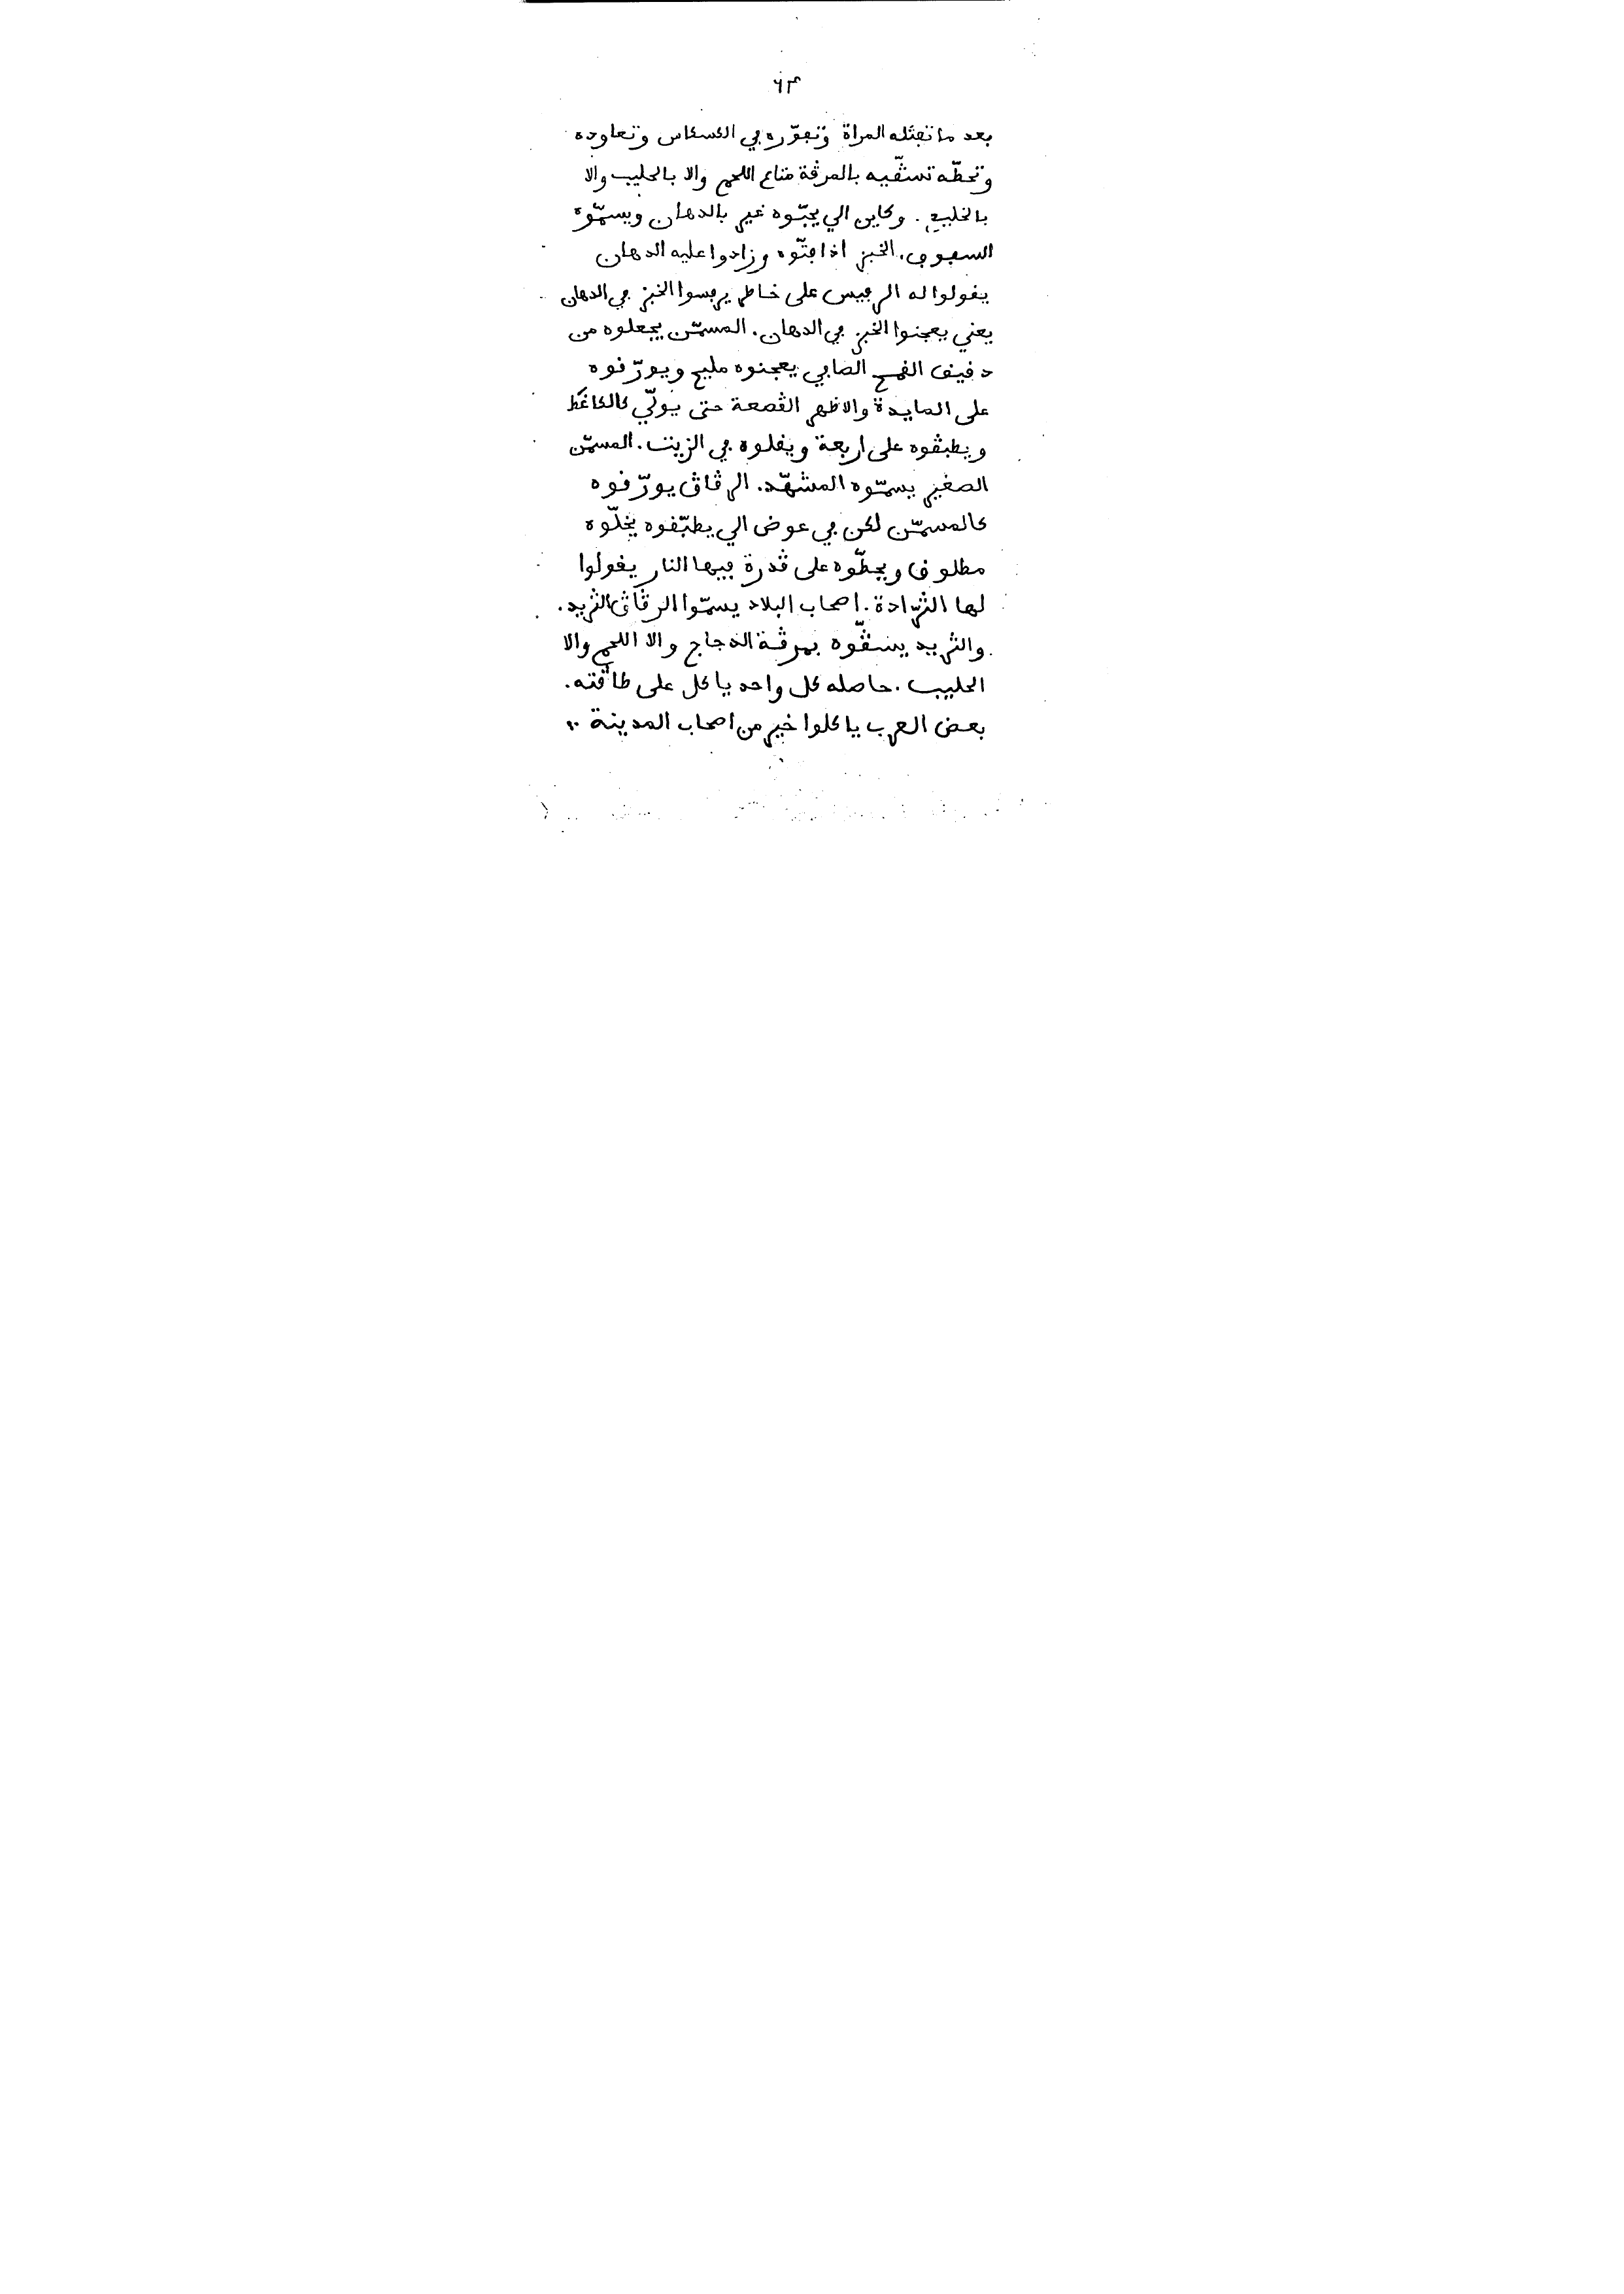 ٦٣
بعد ما تفتله المراة وتفوّره في الكسكاس وتعاوده
وتحطّه تسڨّيه بالمرڨة متاع اللحم والا بالحليب والا
بالخليع. وكاين الي يحبّوه غير بالدهان ويسمّوه
السفوف. الخبز اذا فتّوه وزادوا عليه الدهان
يقولوا له الرفيس على خاطر يرفسوا الخبز في الدهان
يعني يعجنوا الخبز في الدهان. المسمّن يجعلوه من
دقيق القمح الصافي يعجنوه مليح ويورّقوه
على المايدة والا ظهر الڨصعة حتى يولّي كالكاغط
ويطبڨوه على اربعة ويقلوه في الزيت. المسمّن
الصغير يسمّوه المشهّد. الرڨاڨ يورّقوه
كالمسمّن لكن في عوض الي يطبّقوه يخلّوه
مطلوق ويحطّوه على ڨدرة فيها النار يقولوا
لها الثرّادة. اصحاب البلاد يسمّوا الرڨاڨ الثريد.
والثريد يسڨّوه بمرڨة الدجاج والا اللحم والا
الحليب. حاصله كل واحد ياكل على طاڨته.
بعض العرب ياكلوا خير من اصحاب المدينة ⁖